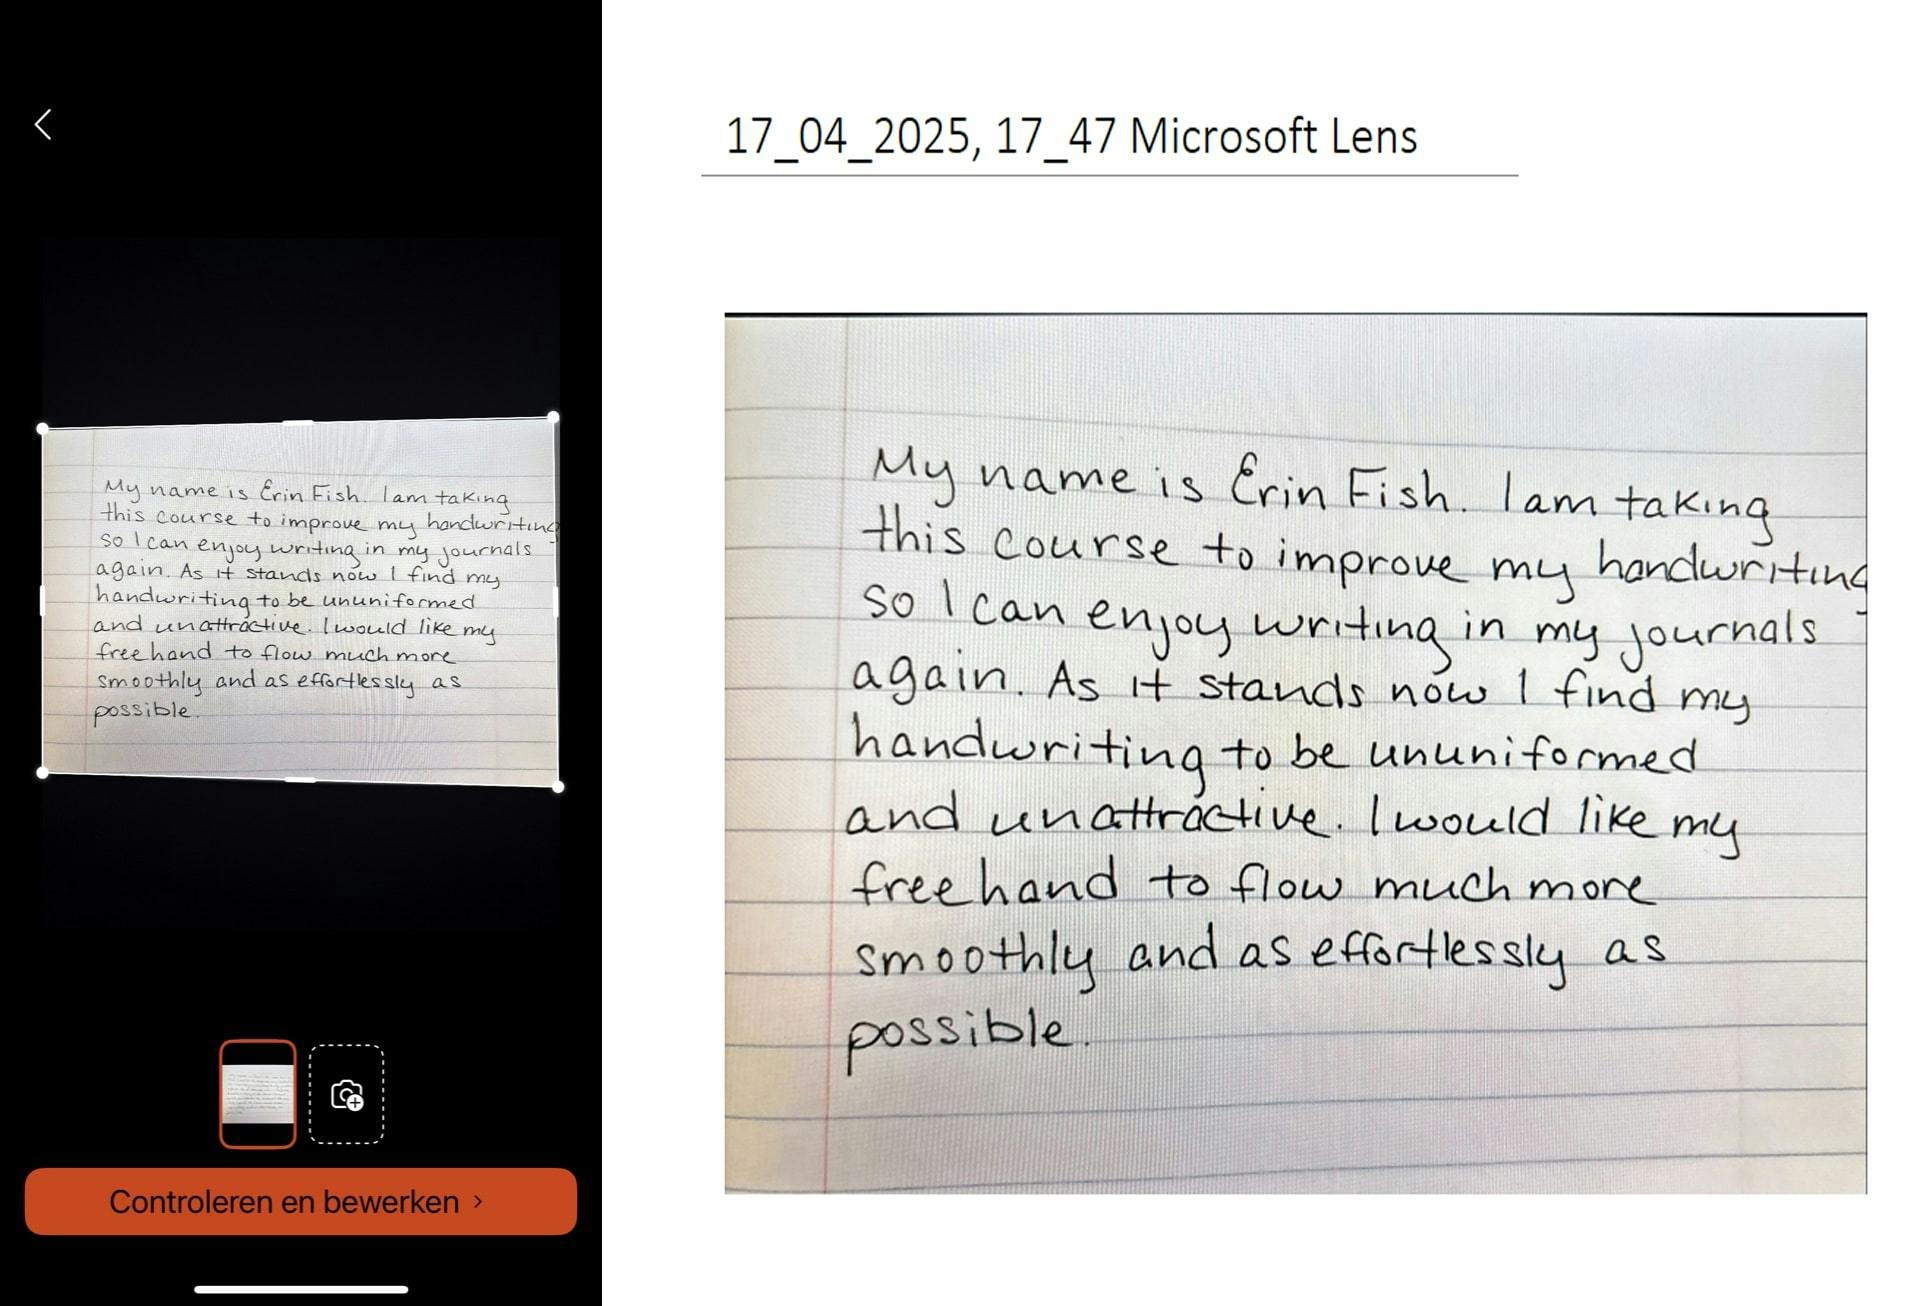 My name is Erin Fish. I am taking
this course to improve my handwriting
so I can enjoy writing in my journals
again. As it stands now I find my
handwriting to be ununiformed
and unattractive. I would like my
free hand to flow much more
smoothly and as effortlessly as
possible.
Controleren en bewerken >
17_04_2025, 17_47 Microsoft Lens
My name is Erin Fish. I am taking
this course to improve my handwriting
so I can enjoy writing in my journals
again. As it stands now I find my
handwriting to be ununiformed
and unattractive. I would like my
free hand to flow much more
smoothly and as effortlessly as
possible.